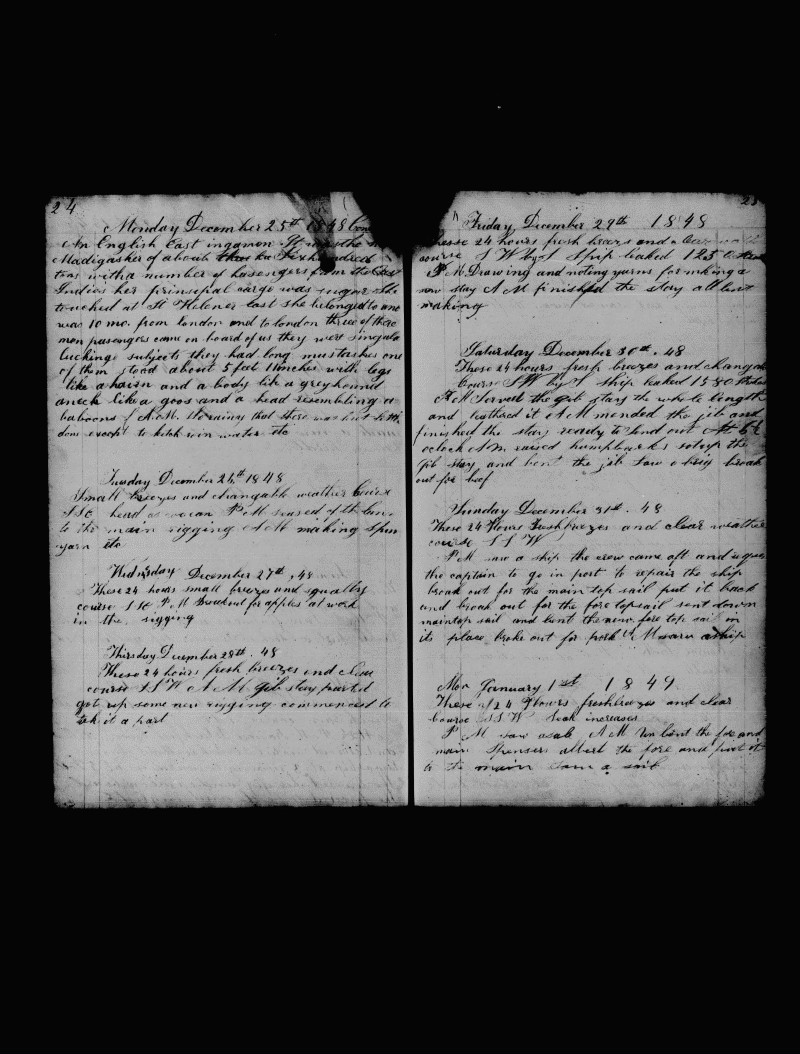 24
Monday December 25th 1848
An English East ingamon It was the
Madigasker of about Six hundred
tons with a number of passengers from the East
Indias her prinsapal cargo was sugar She
touched at St Helener last she belonged to and
was 10 mo. from london and to london three of there
men pasengers came on board of us they wert singula
lucking subjects they had long mustashes one
of them stood about 5 feet 11 inches with legs
like a hairn and a body like a greyhound
a neck like a goos and a head resembling a
baboons A.M. so rainy that there was but little
done except to ketch rain water etc
Tuesday December 26th 1848
Small breezes and changable weather Course
SSE head of ocean P.M seased of the lan-
to the main rigging A M making spun
yarn etc
Wednesday December 27th , 48
These 24 hours small breezes and squally
course SSE P M Breakout for apples at work
in the rigging
Thirsday December 28th . 48
These 24 hours fresh breezes and clear
course S S W A M gib stay parted
got up some new rigging commenced to
tek it a part
25
Friday December 29th 1848
these 24 hours fresh breazs and clear
course S W by S Ship leaked 125
P M Drawing and noting yarns for making a
new stay A M finished the stay all but
making
Saturday December 30th . 48
These 24 hours fresh breezes and changab
Cours S W by S ship leaked 1580
P M Served the gib stay the whole length
and leathered it A M mended the jib and
finished the stay ready to send out At 6
oclock A M raised humpbacks setup the
Gib stay and bent the jib saw a brig break
out for beef
Sunday December 31st . 48
These 24 Hours fresh breezes and clear weather
course S S W
P M saw a ship the crew came aft and
the captain to go in port to repair the ship
break out for the main top sail put it back
and break out for the fore topsail sent down
maintop sail and bent the new fore top sail in
its place broke out for pork A M saw a ship
Mon January 1st 1849
These 24 Hours fresh breezes and clear
Course S.S.W leak increases
P M saw a sale A M Un bent the fore and
main Spensers the fore and put it
to the main saw a sail